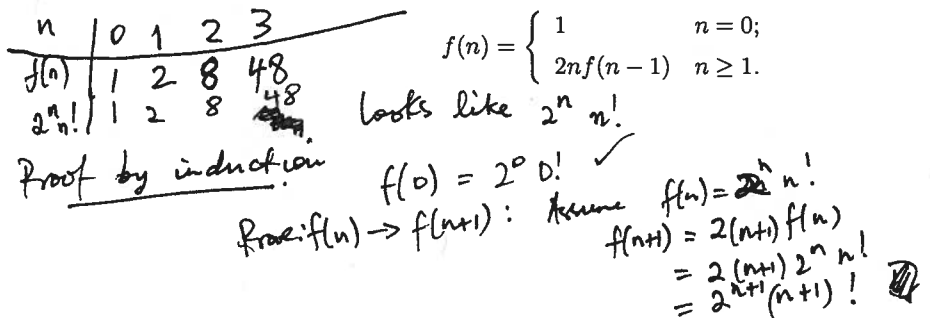 n 0 1 2 3
f(n) 1 2 8 48
2ⁿn! 1 2 8 48
f(n) = { 1 n = 0;
2nf(n − 1) n ≥ 1.
Looks like 2ⁿ n!
Proof by induction.
f(0) = 2⁰ 0! ✓
Prove: f(n) → f(n+1) : Assume f(n) = 2ⁿ n!
f(n+1) = 2(n+1) f(n)
= 2 (n+1) 2ⁿ n!
= 2ⁿ⁺¹ (n+1) !